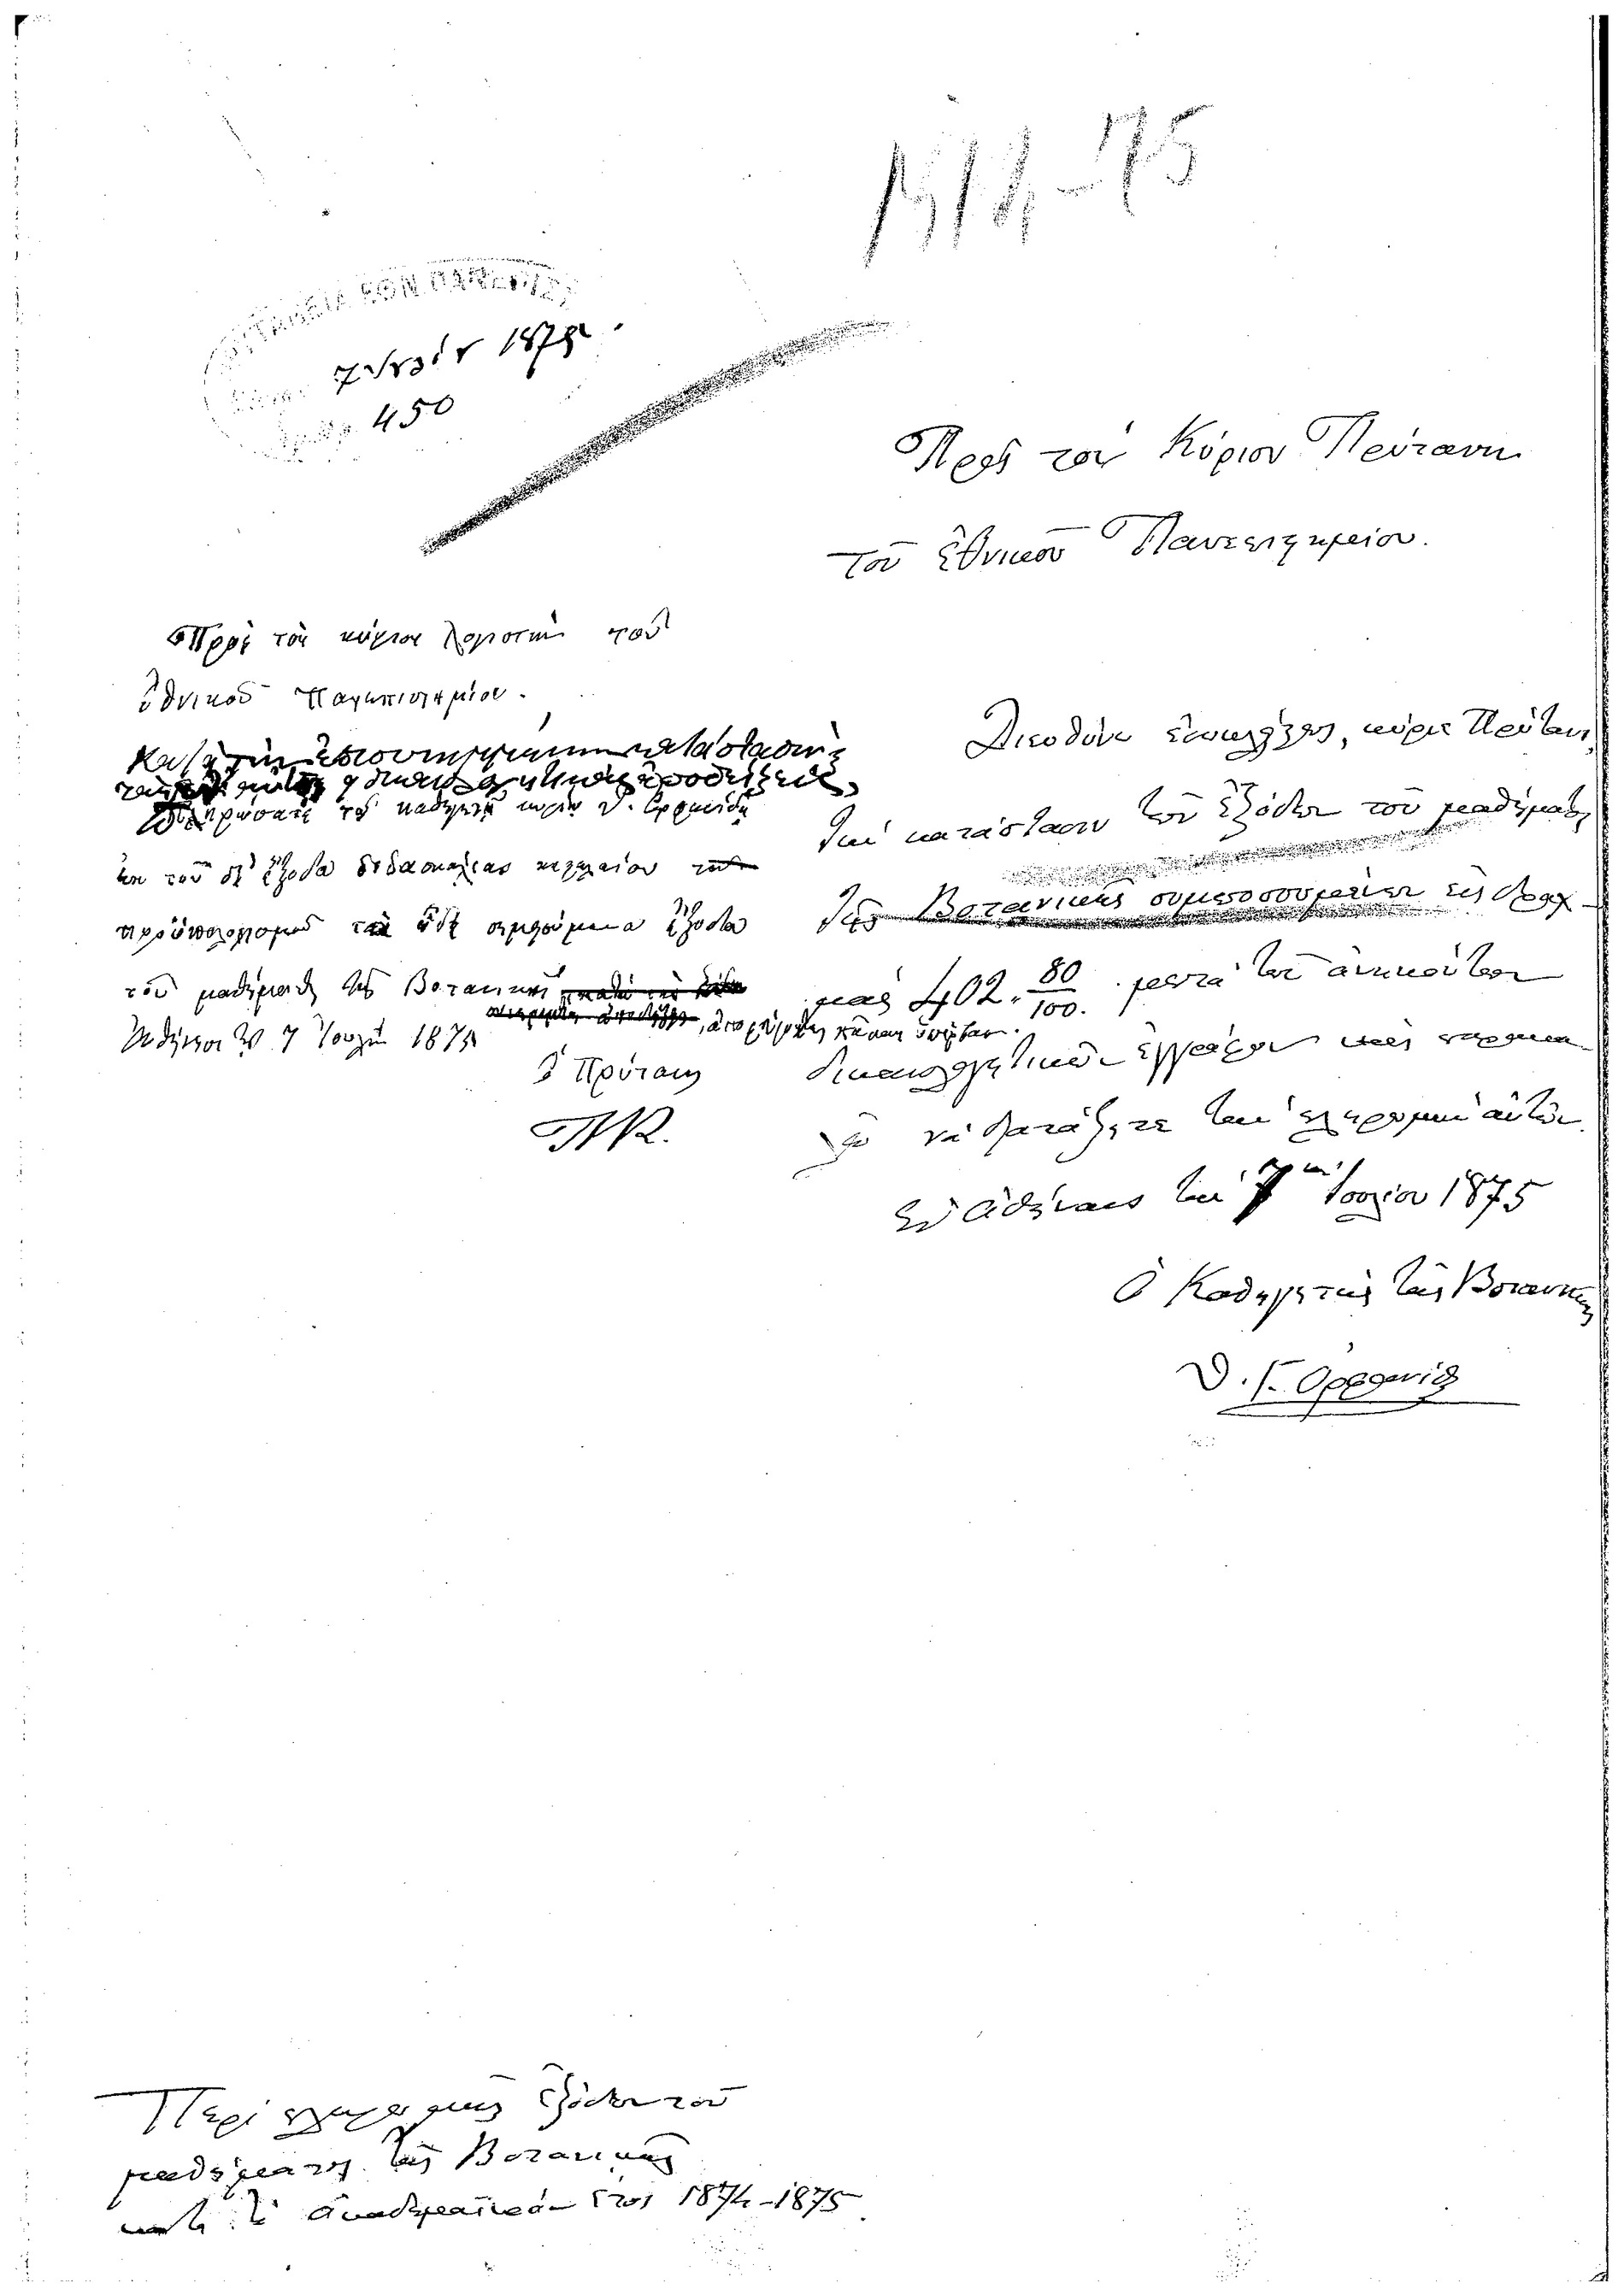 1874-75
7 Ἰουλίου 1875
450
Πρὸς τὸν Κύριον Πρύτανιν
τοῦ Ἐθνικοῦ Πανεπιστημείου.
Πρὸς τὸν κύριον λογιστὴν τοῦ
ἐθνικοῦ Πανεπιστημίου.
Κατὰ τὴν ἐπισυνημμένην κατάστασιν
πληρώσατε τῷ καθηγητῇ κυρίῳ Θ. Ὀρφανίδῃ
ἐκ τοῦ δι' ἔξοδα διδασκαλίας κεφαλαίου τοῦ
προϋπολογισμοῦ τὰ ὧδε σημειούμενα ἔξοδα
τοῦ μαθήματος τῆς Βοτανικῆς
Ἀθήνησι τῇ 7 Ἰουλίου 1875
ὁ Πρύτανις
Διευθύνω ἐσωκλείστως, κύριε Πρύτανι,
τὴν κατάστασιν τῶν ἐξόδων τοῦ μαθήματος
τῆς Βοτανικῆς συμποσουμένων εἰς δραχ-
μὰς 402. 80/100. μετὰ τῶν ἀνηκόντων
δικαιολογητικῶν ἐγγράφων καὶ παρακα-
λῶ νὰ διατάξητε τὴν πληρωμὴν αὐτῶν.
Ἐν Ἀθήναις τὴν 7ην Ἰουλίου 1875
Ὁ Καθηγητὴς τῆς Βοτανικῆς
Θ. Γ. Ὀρφανίδης
Περὶ πληρωμῆς ἐξόδων τοῦ
μαθήματος τῆς Βοτανικῆς
κατὰ τὸ ἀκαδημαϊκὸν ἔτος 1874-1875